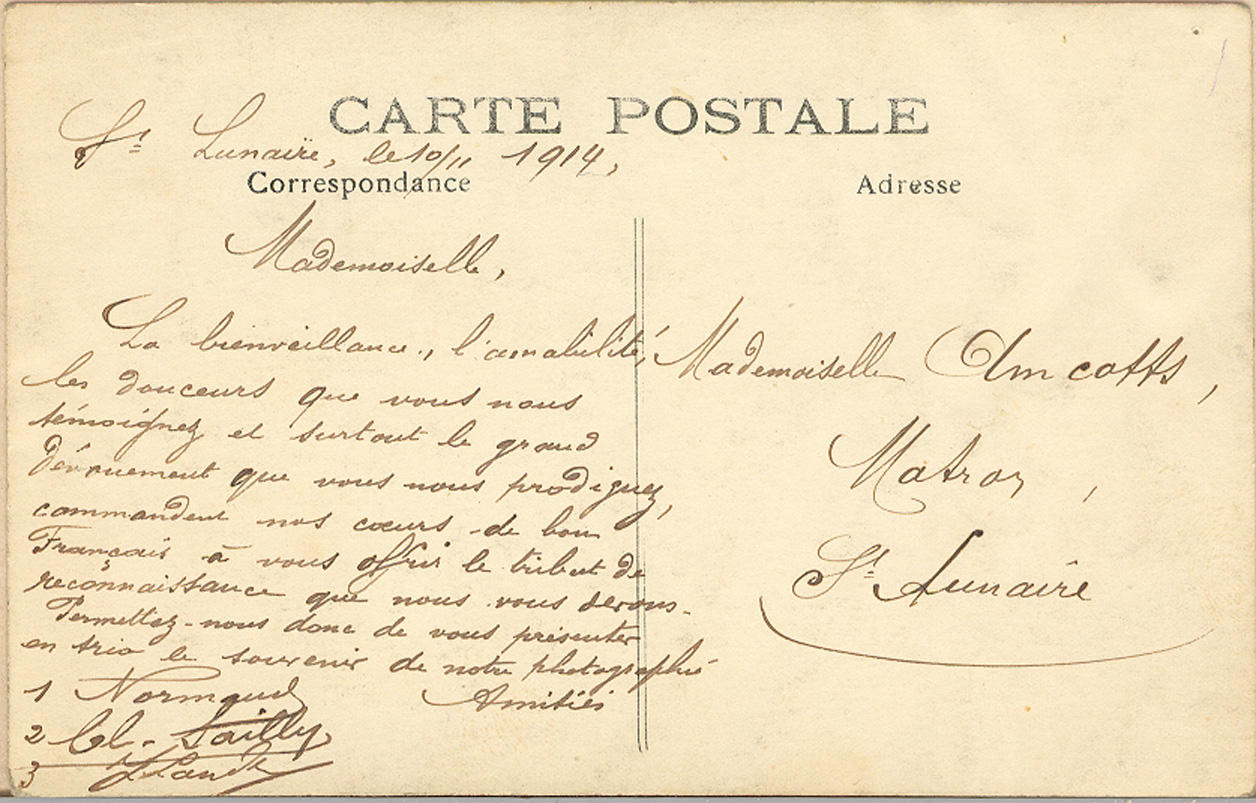 CARTE POSTALE
St Lunaire, le 10/11 1914,
Correspondance
Mademoiselle,
La bienveillance, l'amabilité,
les douceurs que vous nous
témoignez et surtout le grand
dévouement que vous nous prodiguez,
commandent nos cœurs de bon
Français à vous offrir le tribut de
reconnaissance que nous vous devons.
Permettez-nous donc de vous présenter
en trio le souvenir de notre photographie
Amitiés
1 Normand
2 Cl. Sailly
3
Adresse
Mademoiselle Amcotts,
Matron,
St Lunaire